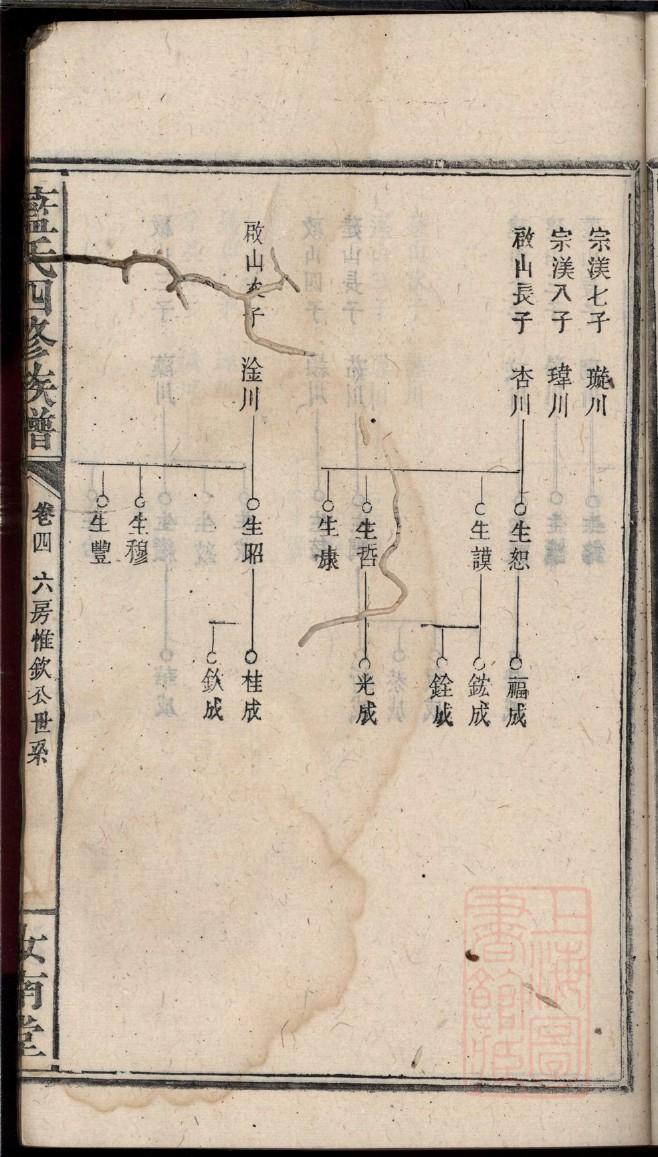 宗渼七子 璇川
宗渼八子 瑋川
啟山長子 杏川
生恕
福成
生謨
鋐成
銓成
生哲
光成
生康
啟山次子 淦川
生昭
桂成
欽成
生穆
生豐
藍氏四修族譜
卷四 六房惟欽公世系
汝南堂
上海圖書館藏